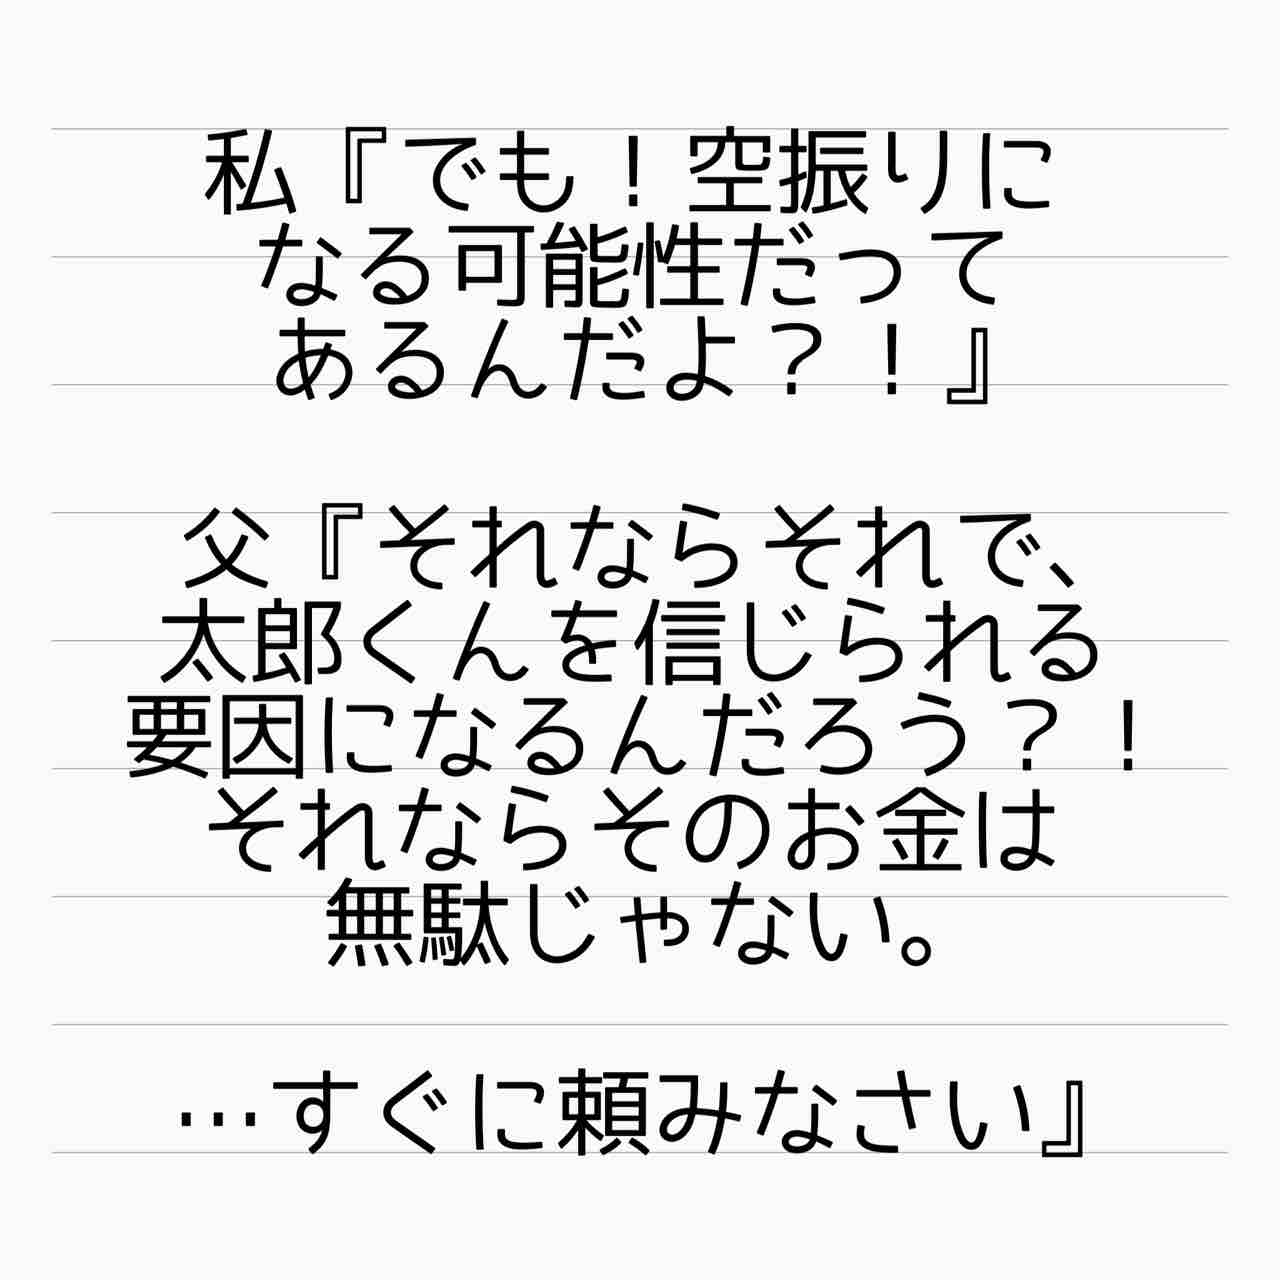 私『でも！空振りに
なる可能性だって
あるんだよ？！』
父『それならそれで、
太郎くんを信じられる
要因になるんだろう？！
それならそのお金は
無駄じゃない。
…すぐに頼みなさい』